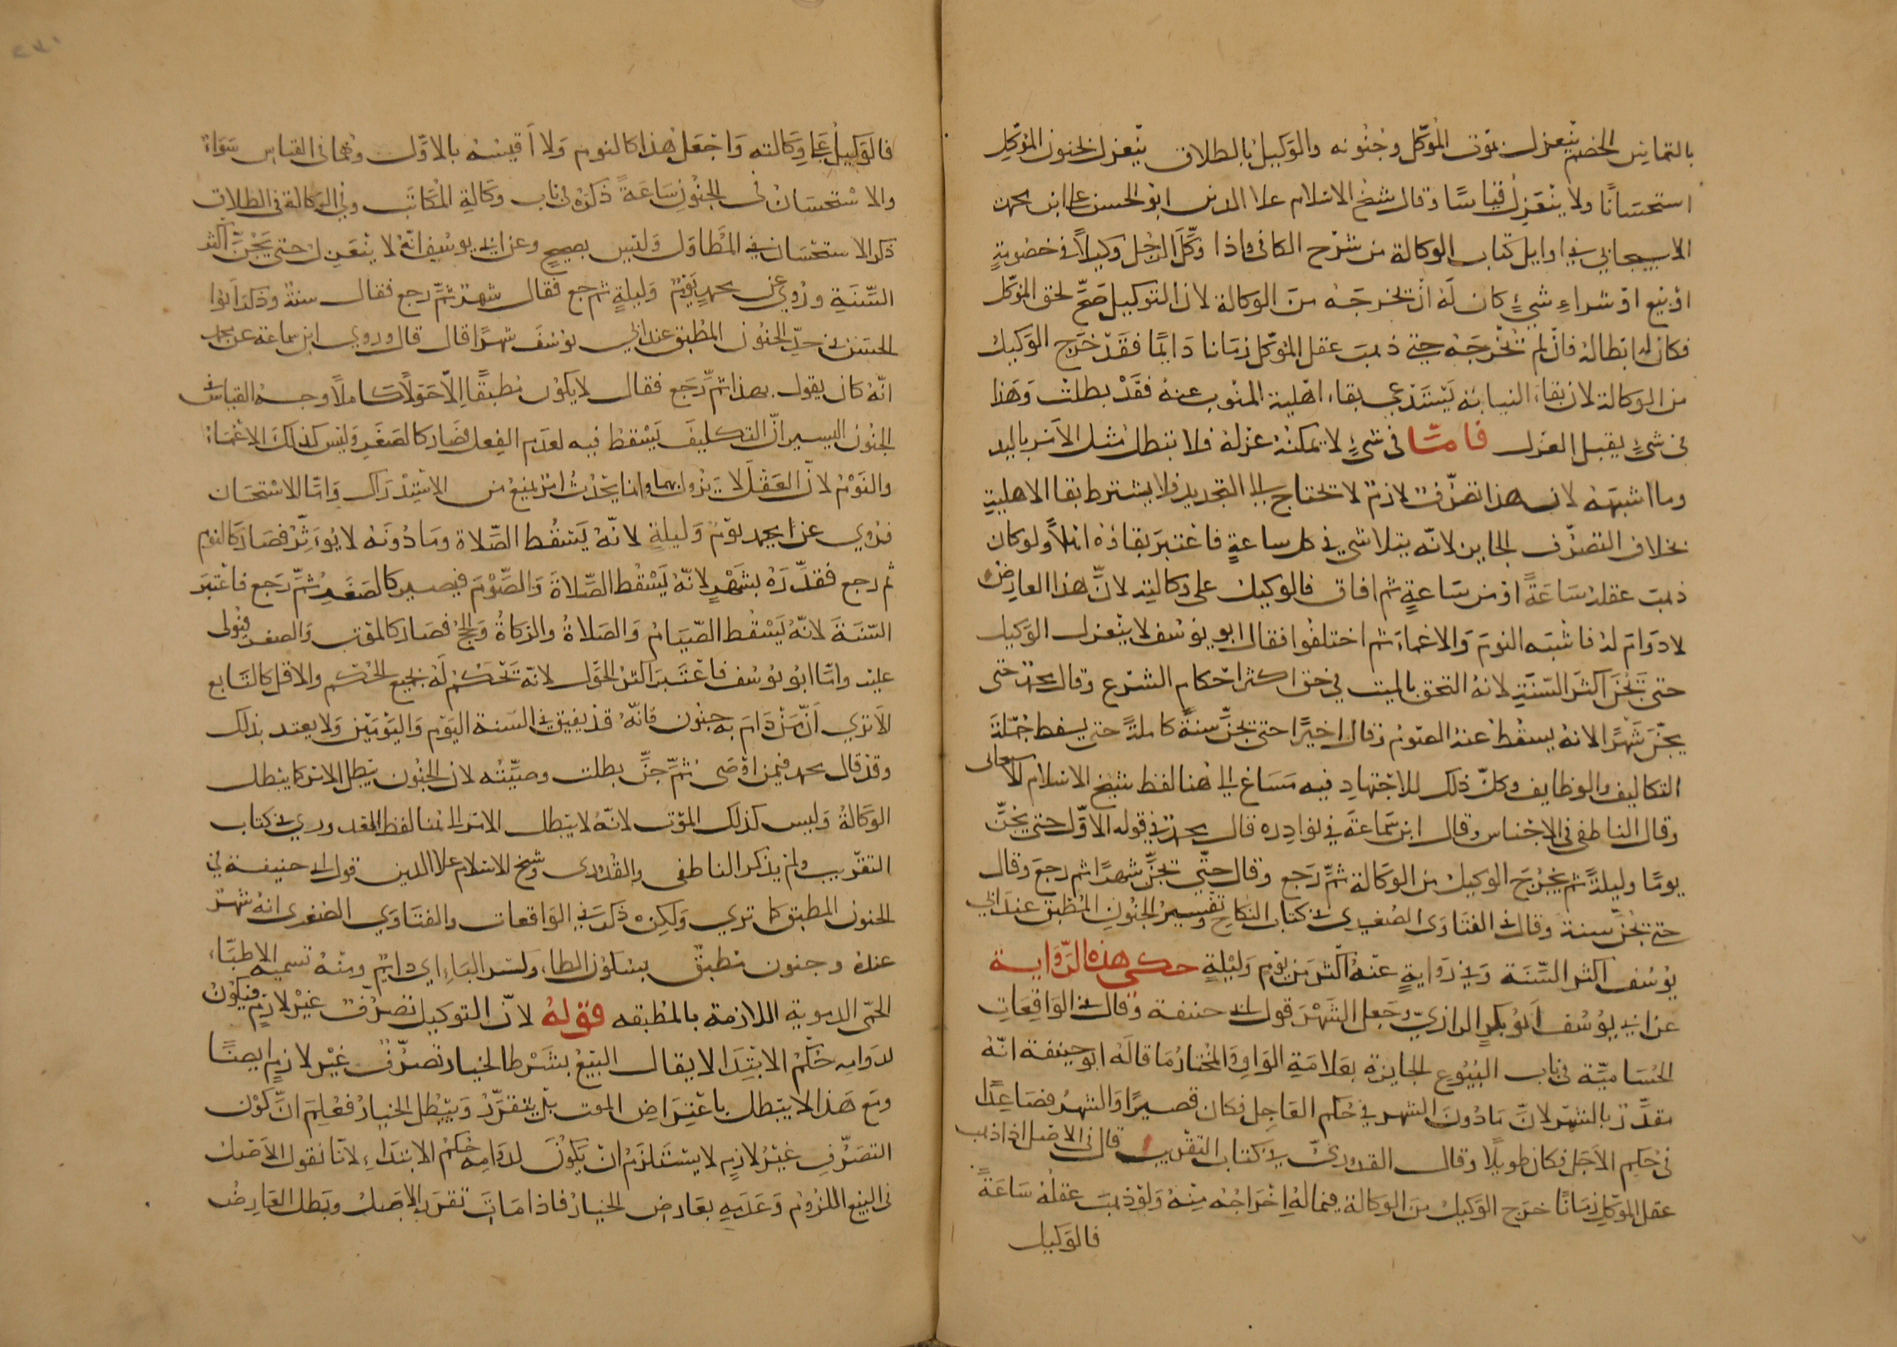 بالتماس الخصم ينعزل بموت الموكل وجنونه والوكيل بالطلاق ينعزل لجنون الموكل
استحسانا ولا ينعزل قياسا وقال شيخ الاسلام علا الدين ابو الحسن على ابن محمد
الاسبيجابي في اوايل كتاب الوكالة من شرح الكافي واذا وكل الرجل وكيلا في خصومة
او بيع او شراء شيء كان له ان يخرجه من الوكالة لان التوكيل صح لحق الموكل
فكان له ابطاله فان لم يخرجه حتى ذهب عقل الموكل زمانا دايما فقد خرج الوكيل
من الوكالة لان بقاء النيابة يستدعي بقاء اهلية المنوب عنه فقد بطلت وهذا
في شيء يقبل العزل فامّا في شيء لا يمكنه عزله فلا تبطل مثل الامر باليد
وما اشبهه لان هذا تصرف لازم لا تحتاج الى التجديد فلا يشترط بقا الاهلية
بخلاف التصرف الجايز لانه يتلاشى في كل ساعة فاعتبر بقاؤه املا ولو كان
ذهب عقله ساعة او من ساعة ثم افاق فالوكيل على وكالته لان هذا العارض
لا دوام له فاشبه النوم والاغماء ثم اختلفوا فقال ابو يوسف لا ينعزل الوكيل
حتى يجن اكثر السنة لانه التحق بالميت في حق اكثر احكام الشرع وقال محمد حتى
يجن شهرا لانه يسقط عنه الصوم وقال اخيرا حتى تجن سنة كاملة حتى يسقط جملة
التكاليف والوظايف وكل ذلك للاجتهاد فيه مساغ الى هنا لفظ شيخ الاسلام
وقال الناطفي في الاجناس وقال ابن سماعة في نوادره قال محمد في قوله الاول حتى يجن
يوما وليلة ثم يخرج الوكيل من الوكالة ثم رجع وقال حتى تجن شهرا ثم رجع وقال
حتى تجن سنة وقال في الفتاوى الصغرى في كتاب النكاح تفسير الجنون المطبق عند ابي
يوسف اكثر السنة وفي رواية عنه اكثر من يوم وليلة حكى هذه الرواية
عن ابي يوسف ابو بكر الرازي وجعل الشهر قول ابي حنيفة وقال في الواقعات
الحسامية في باب البيوع الجايزة بعلامة الواو والمختار ما قاله ابو حنيفة انه
مقدر بالشهر لان مادون الشهر في حكم العاجل فكان قصيرا والشهر فصاعدا
في حكم الاجل فكان طويلا وقال القدوري في كتاب التقريب قال في الاصل اذا ذهب
عقل الموكل زمانا خرج الوكيل من الوكالة فيما له اخراجه منه ولو ذهب عقله ساعة
فالوكيل
فالوكيل على وكالته واجعل هذا كالنوم ولا اقيسه بالاول وهما في القياس سواء
والاستحسان في الجنون ساعة ذكره في باب وكالة المكاتب وفي الوكالة في الطلاق
ذكر الاستحسان في المتطاول وليس بصحيح وعن ابي يوسف انه لا ينعزل حتى يجن اكثر
السنة وروي عن محمد يوم وليلة ثم رجع فقال شهر ثم رجع فقال سنة وذكر ابوا
الحسن في حد الجنون المطبق عند ابي يوسف شهرا قال قال وروى ابن سماعة عن محمد
انه كان يقول بهذا ثم رجع فقال لا يكون مطبقا الا حولا كاملا وجه القياس في
الجنون اليسير ان التكليف يسقط فيه لعدم الفعل فصار كالصغر وليس كذلك الاغماء
والنوم لان العقل لا يزول بهما وانما يحدث امر يمنع من الاستدراك واما الاستحسان
فروي عن محمد يوم وليلة لانه يسقط الصلاة وما دونه لا يؤثر فصار كالنوم
ثم رجع فقدره بشهر لانه يسقط الصلاة والصوم فيصير كالصغر ثم رجع فاعتبر
السنة لانه يسقط الصيام والصلاة والزكاة والحج فصار كالموت والصغر فيولى
عليه واما ابو يوسف فاعتبر اكثر الحول لانه تحكم له بجميع الحكم والاقل كالتابع
الا ترى ان من دام به جنون فانه قد يفيق في السنة اليوم واليومين ولا يعتد بذلك
وقد قال محمد فيمن اوصى ثم جن بطلت وصيته لان الجنون يبطل الامر كما يبطل
الوكالة وليس كذلك الموت لانه لا يبطل الامر الى هنا لفظ القدوري في كتاب
التقريب ولم يذكر الناطفي والقدوري وشيخ الاسلام علا الدين قول ابي حنيفة في
الجنون المطبق كما ترى ولكن ذكر في الواقعات والفتاوى الصغرى انه شهر
عنده وجنون مطبق بسكون الطاء وكسر الباء اي دايم ومنه تسمية الاطباء
الحمى الدموية اللازمة بالمطبقه قوله لان التوكيل تصرف غير لازم فيكون
لدوامه حكم الابتدا لا يقال البيع بشرط الخيار تصرف غير لازم ايضا
ومع هذا لا يبطل باعتراض الموت بل يتقرر ويبطل الخيار فعلم ان كون
التصرف غير لازم لا يستلزم ان يكون لدوامه حكم الابتداء لانا نقول الاصل
في البيع اللزوم وعدمه بعارض الخيار فاذا مات تقرر الاصل وبطل العارض